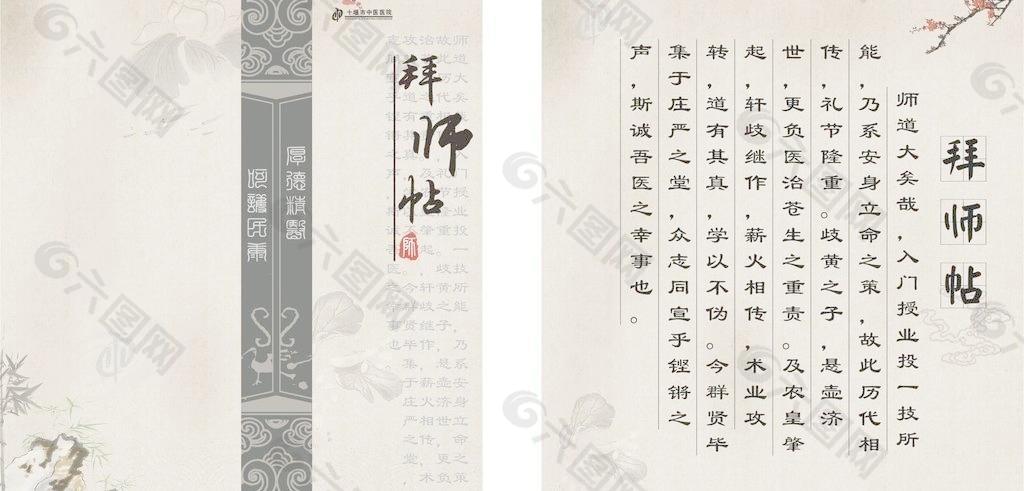 十堰市中医医院
拜师帖
师
厚德精醫
呵護民康
拜师帖
师道大矣哉，入门授业投一技所
能，乃系安身立命之策，故此历代相
传，礼节隆重。歧黄之子，悬壶济
世，更负医治苍生之重责。及农皇肇
起，轩歧继作，薪火相传，术业攻
转，道有其真，学以不伪。今群贤毕
集于庄严之堂，众志同宣乎铿锵之
声，斯诚吾医之幸事也。
六图网